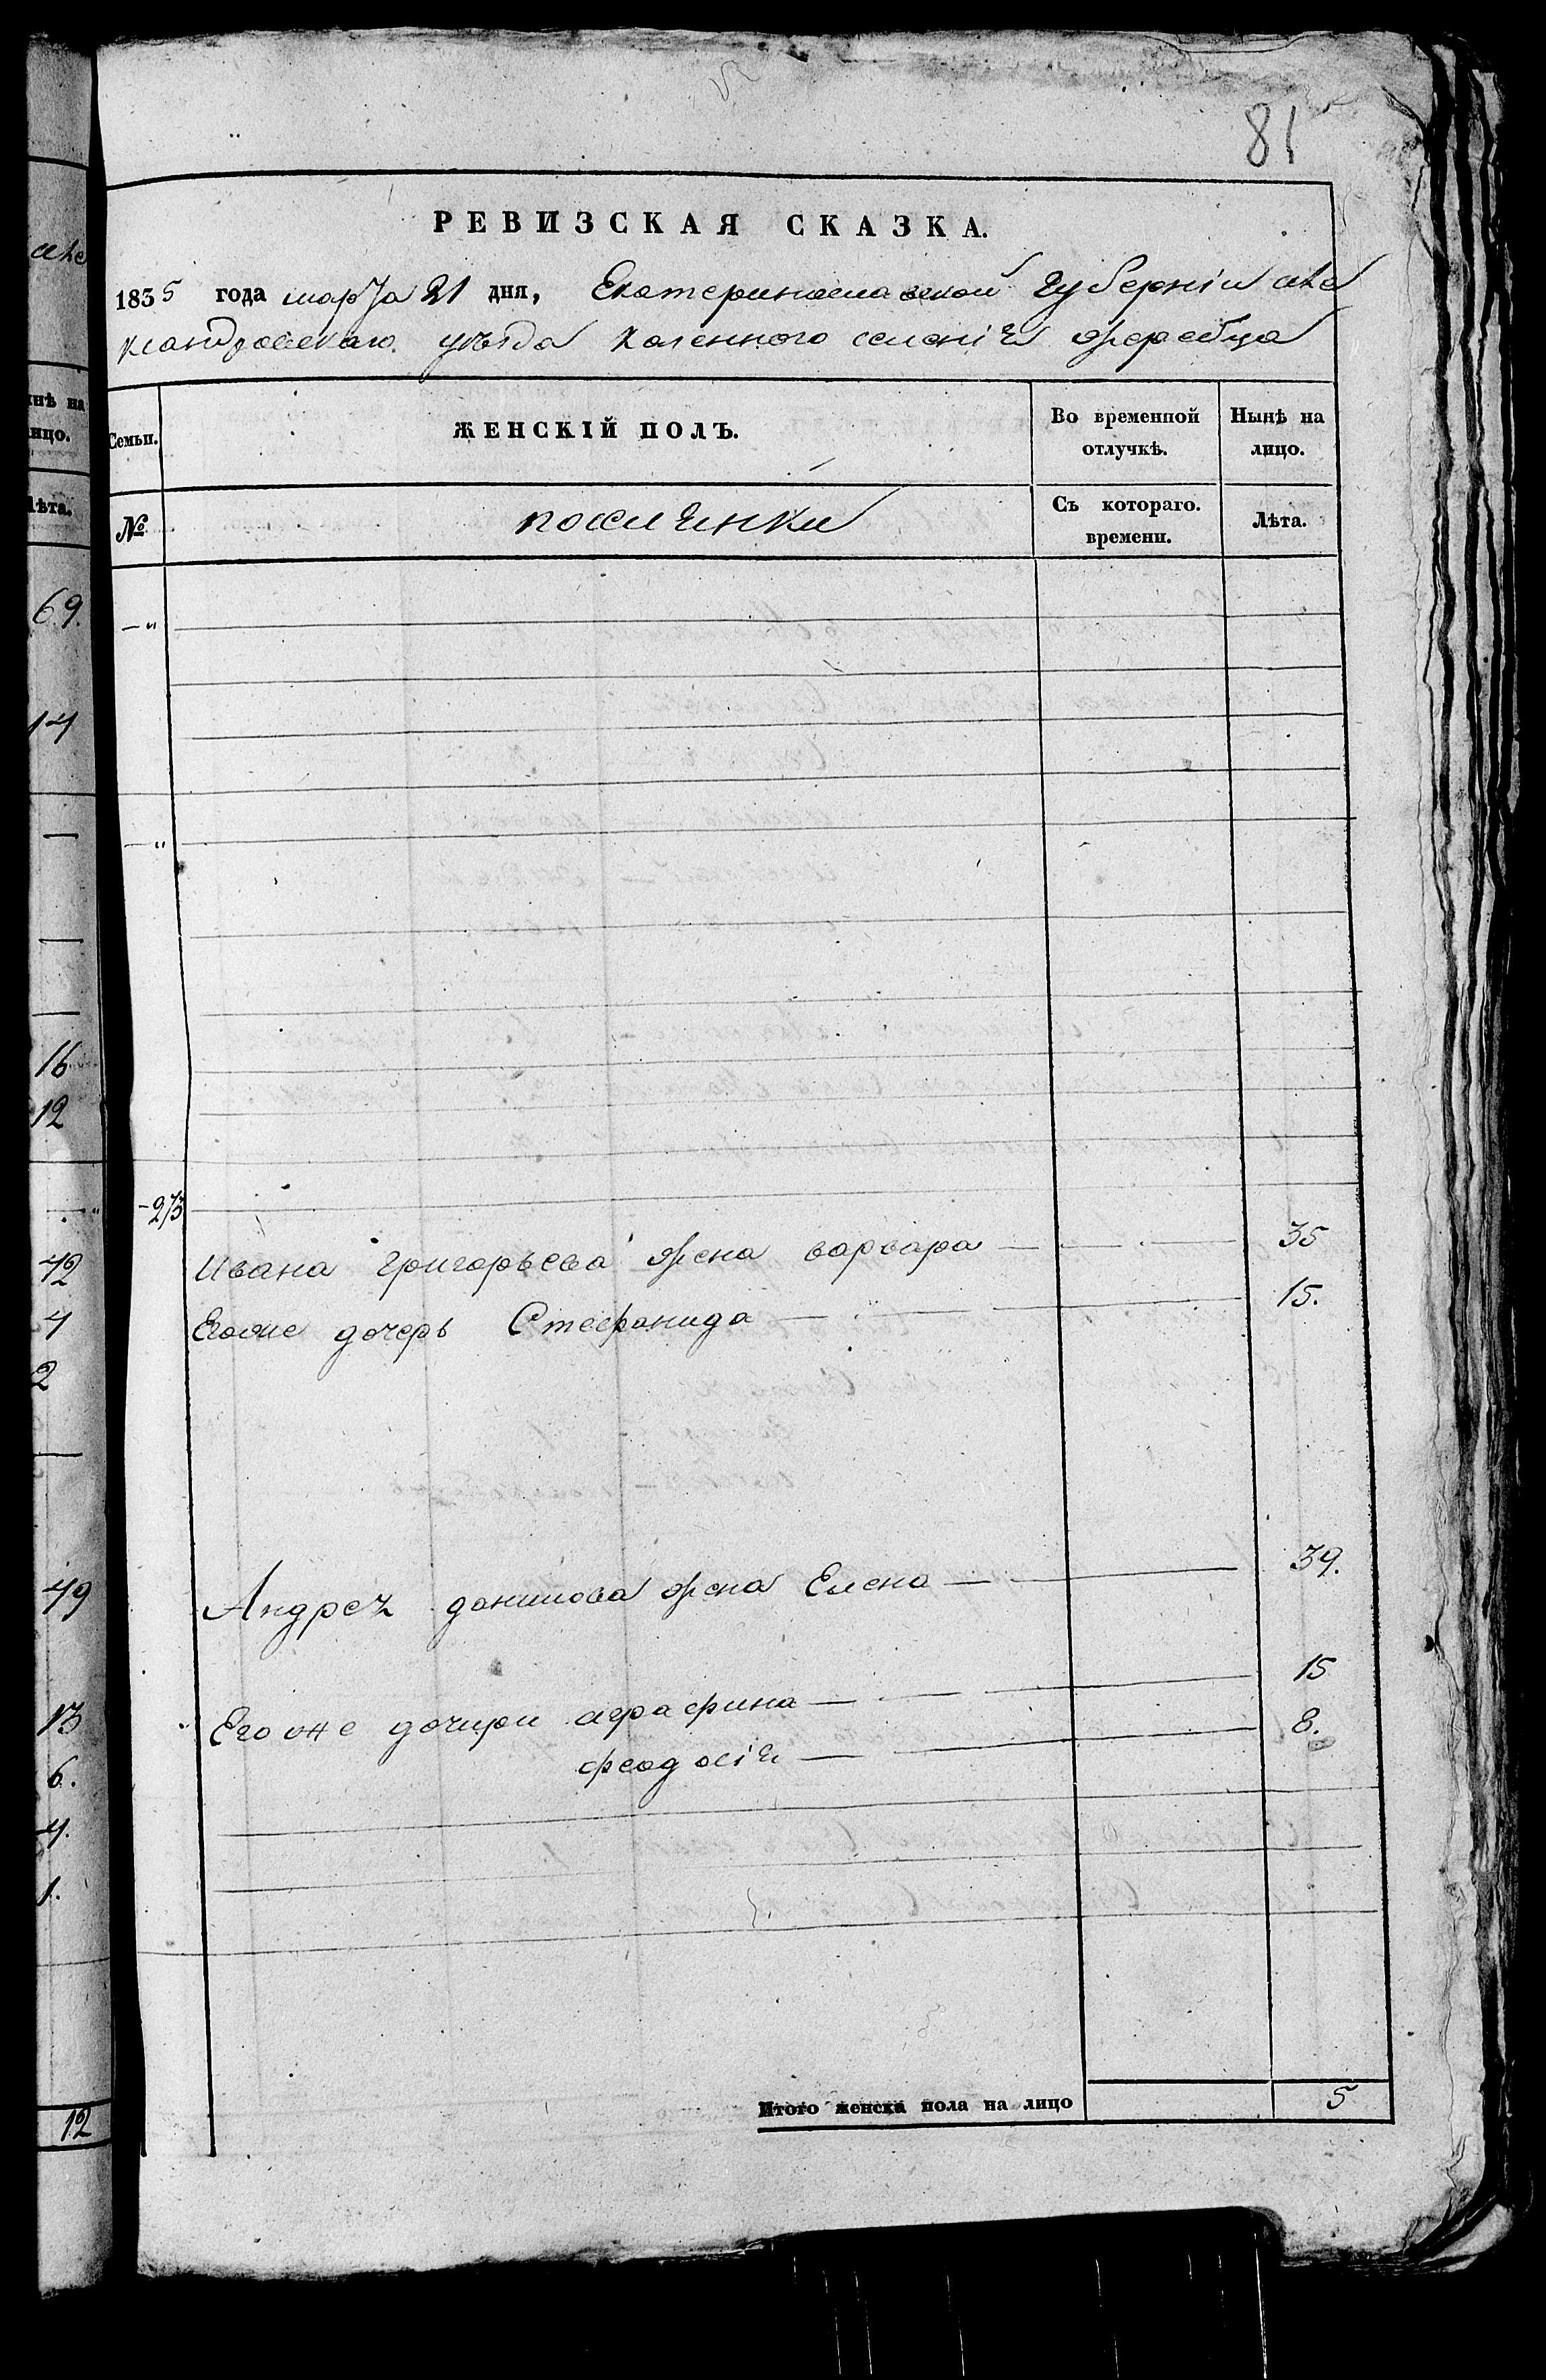 але
81
РЕВИЗСКАЯ СКАЗКА.
1835 года марта 21 дня, Екатеринославской губерніи але
ксандровскаго уѣзда казенного селенія жеребца
Семьи.
ЖЕНСКІЙ ПОЛЪ.
Во временной отлучкѣ.
Ныне на лицо.
№
поселянки
Съ котораго. времени.
Лѣта.
273
Ивана григорьева жена варвара 35
Егоже дочерь Стефанида 15.
Андрея данилова жена Елена 39.
Егоже дочири аграфина 15
феодосія 8.
Итого женска пола на лицо 5
нѣ на
ицо.
Лѣта.
69.
14
16
12
42
4
2
49
13
6.
4.
1.
12